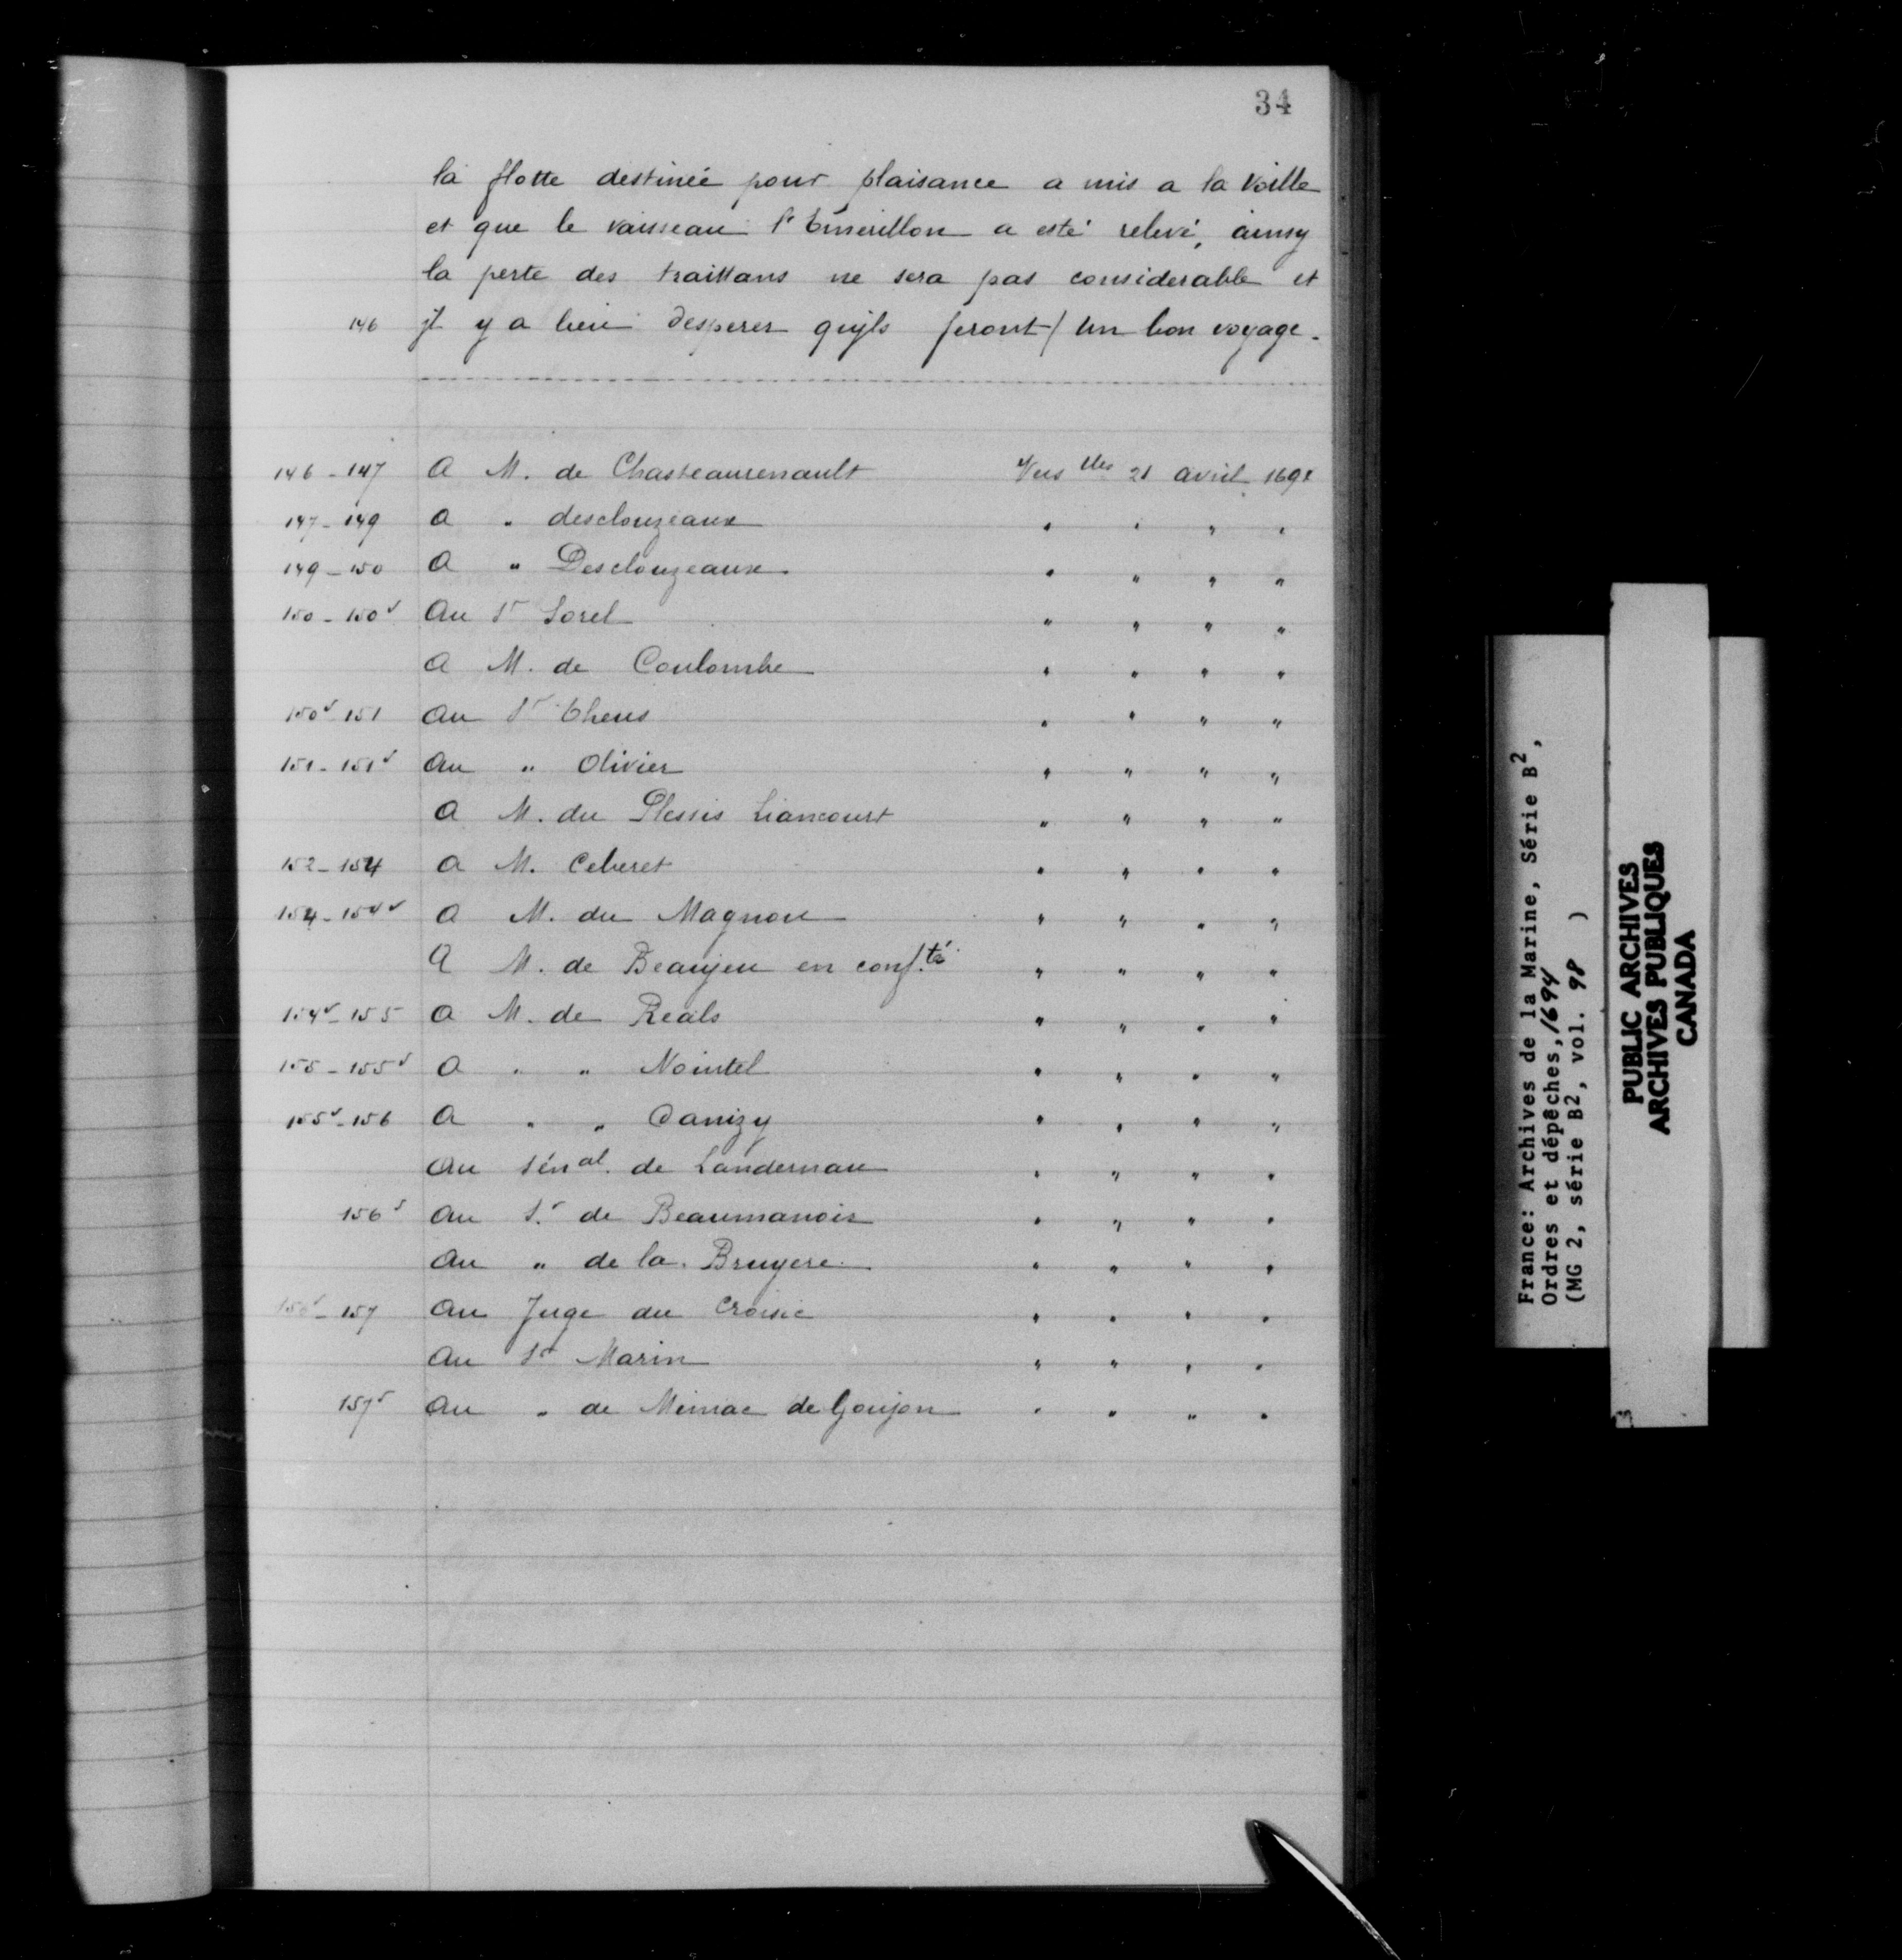 34
la flotte destinée pour plaisance a mis a la voille
et que le vaisseau l'Emerillon a esté relevé, ainsy
la perte des traittans ne sera pas considerable et
146 jl y a lieu desperer quyls feront / un bon voyage.
146 - 147 A M. de Chasteaurenault Vers lles 21 avril 169
147 - 149 A " desclouzeaux " " " "
149 - 150 A " Desclouzeaux. " " " "
150 - 150v Au Sr Sorel " " " "
A M. de Coulombe " " " "
150v 151 Au Sr Cheus " " " "
151 - 151v Au " Olivier " " " "
A M. du Plessis Liancourt " " " "
152 - 154 A M. Ceberet " " " "
154 - 154v A M. du Magnou " " " "
A M. de Beaujeu en conf.té " " " "
154v - 155 A M. de Reals " " " "
155 - 155v A " " Nointel " " " "
155v - 156 A " " Danizy " " " "
Au sénal. de Landernau " " " "
156v Au S.r de Beaumanoir " " " "
Au " de la Bruyere " " " "
156v - 157 Au Juge du Croisic " " " "
Au Sr Marin " " " "
157v Au " de Mimac de Goujon " " " "
France: Archives de la Marine, Série B2,
Ordres et dépêches, 1694
(MG 2, série B2, vol. 98 )
PUBLIC ARCHIVES
ARCHIVES PUBLIQUES
CANADA